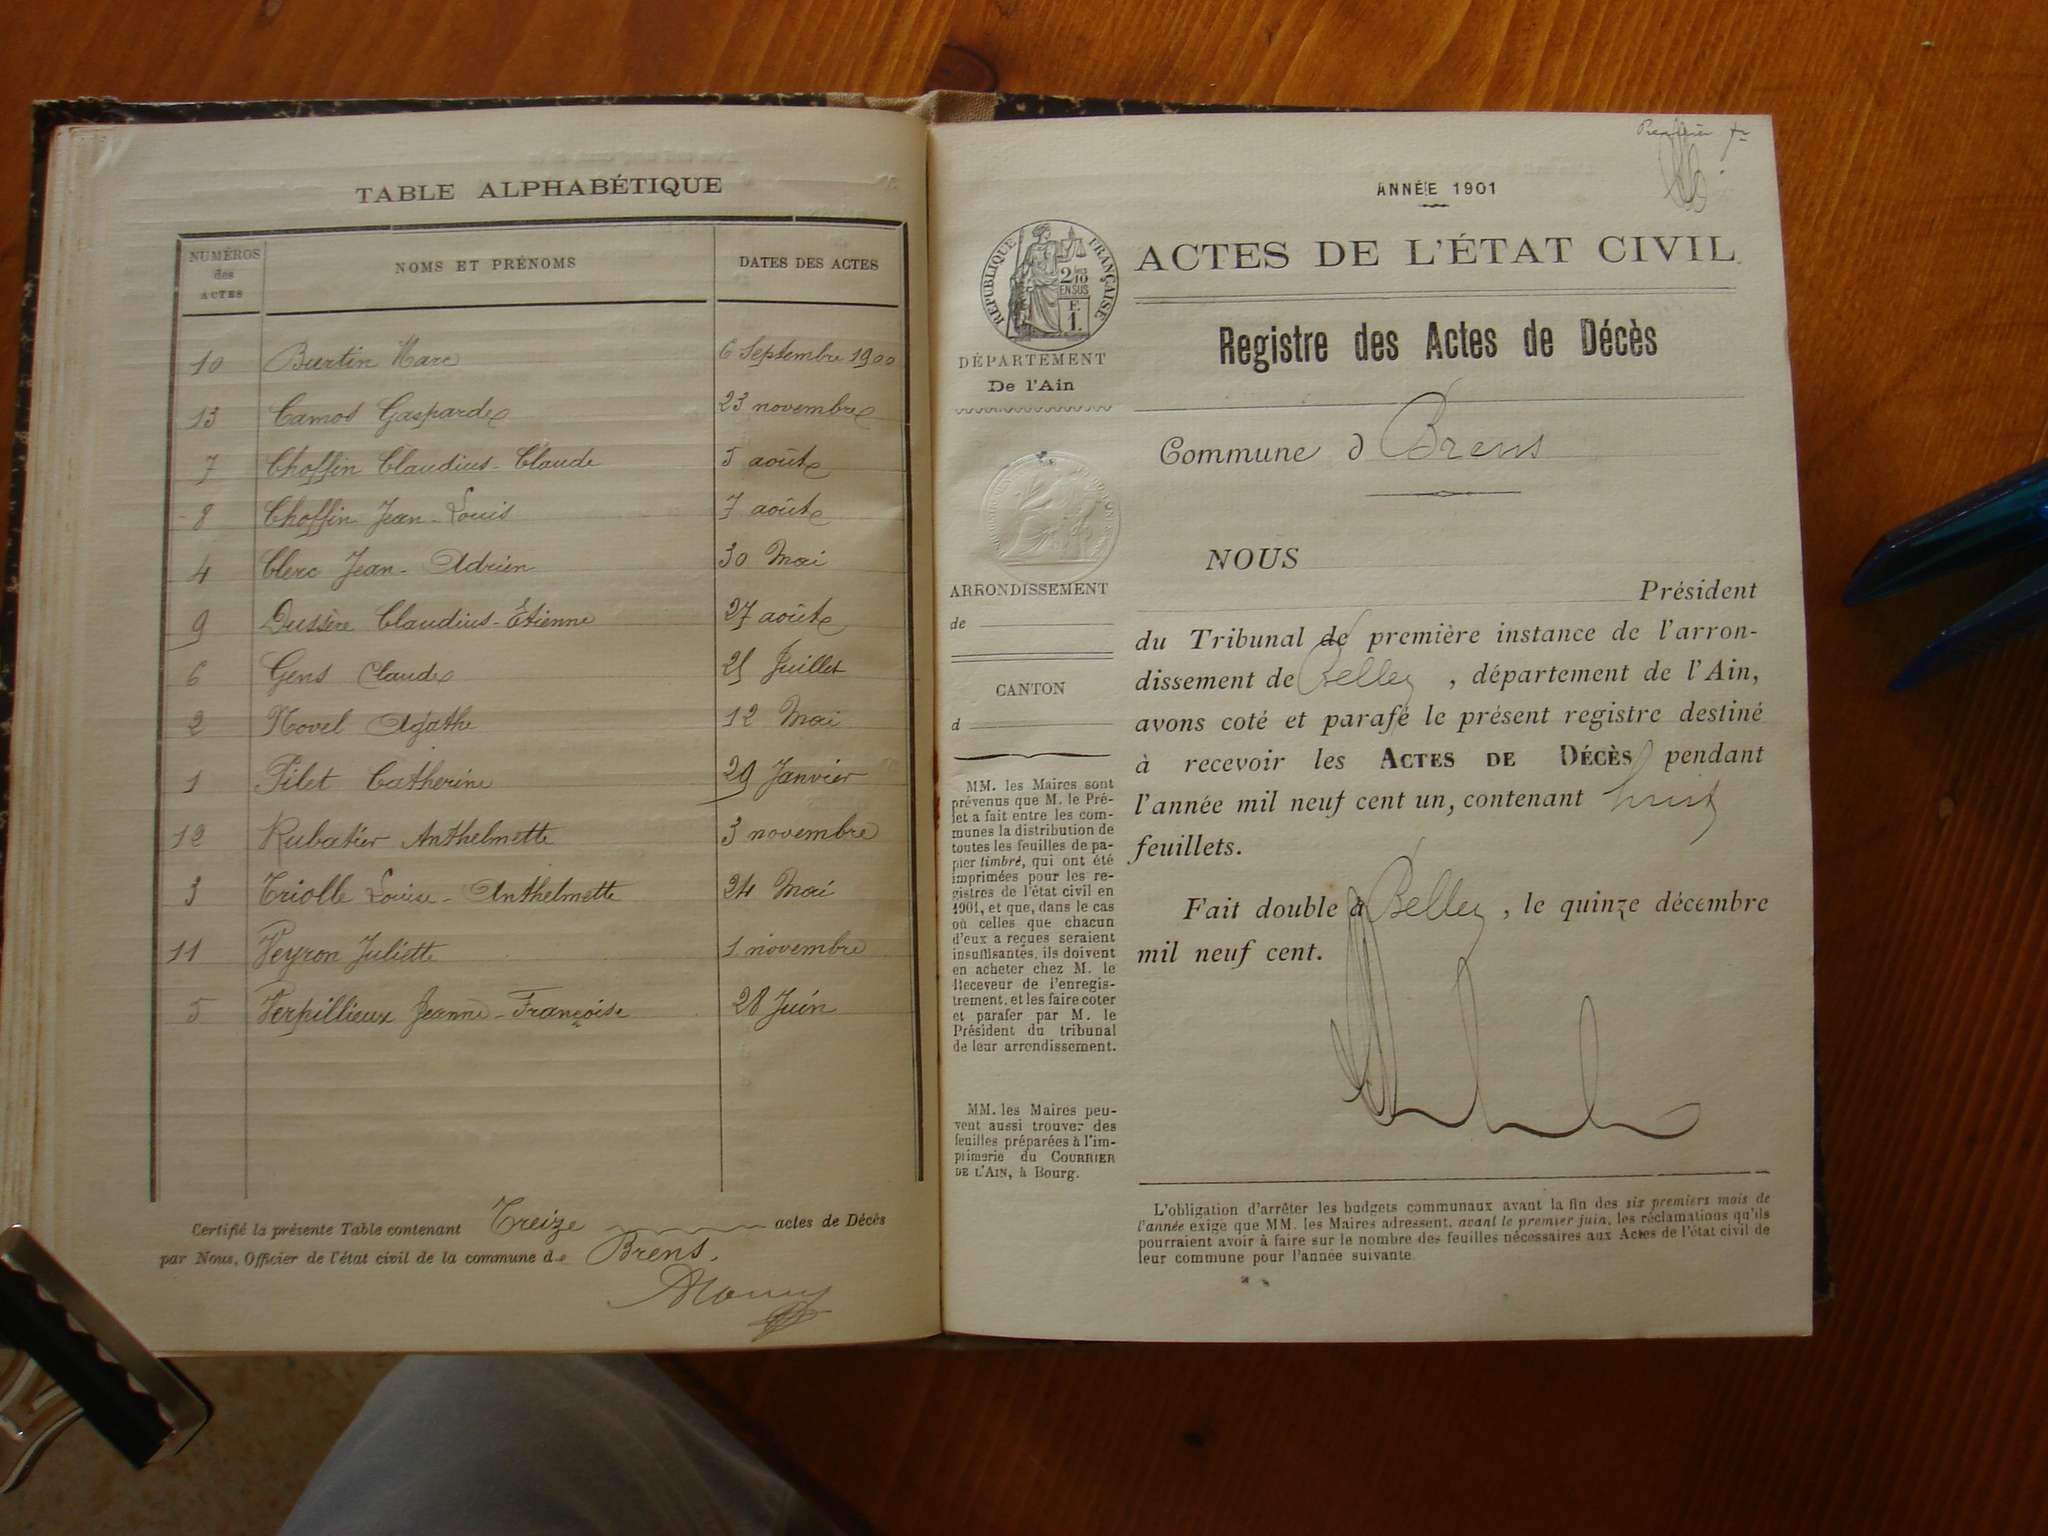 TABLE ALPHABÉTIQUE
NUMÉROS des ACTES NOMS ET PRÉNOMS DATES DES ACTES
10 Burtin Marc 6 Septembre 1900
13 Camos Gasparde 23 novembre
7 Choffin Claudius-Claude 5 août
8 Choffin Jean-Louis 7 août
4 Clerc Jean-Adrien 30 Mai
9 Dussère Claudius-Étienne 27 août
6 Gens Claude 25 Juillet
2 Novel Agathe 12 Mai
1 Pilet Catherine 29 Janvier
12 Rubatier Anthelmette 3 novembre
3 Triolle Louise-Anthelmette 24 Mai
11 Peyron Juliette 1 novembre
5 Verpillieux Jeanne-Françoise 28 Juin
Certifié la présente Table contenant Treize actes de Décès
par Nous, Officier de l'état civil de la commune de Brens.
ANNÉE 1901
RÉPUBLIQUE FRANÇAISE
2/10
EN SUS
F.
1.
ACTES DE L'ÉTAT CIVIL
Registre des Actes de Décès
DÉPARTEMENT
De l'Ain
Commune d Brens
ARRONDISSEMENT
de
CANTON
d
MM. les Maires sont
prévenus que M. le Pré-
fet a fait entre les com-
munes la distribution de
toutes les feuilles de pa-
pier timbré, qui ont été
imprimées pour les re-
gistres de l'état civil en
1901, et que, dans le cas
où celles que chacun
d'eux a reçues seraient
insuffisantes, ils doivent
en acheter chez M. le
Receveur de l'enregis-
trement, et les faire coter
et parafer par M. le
Président du tribunal
de leur arrondissement.
MM. les Maires peu-
vent aussi trouver des
feuilles préparées à l'im-
primerie du COURRIER
DE L'AIN, à Bourg.
NOUS
Président
du Tribunal de première instance de l'arron-
dissement de Belley, département de l'Ain,
avons coté et parafé le présent registre destiné
à recevoir les ACTES DE DÉCÈS pendant
l'année mil neuf cent un, contenant huit
feuillets.
Fait double à Belley, le quinze décembre
mil neuf cent.
L'obligation d'arrêter les budgets communaux avant la fin des six premiers mois de
l'année exige que MM. les Maires adressent, avant le premier juin, les réclamations qu'ils
pourraient avoir à faire sur le nombre des feuilles nécessaires aux Actes de l'état civil de
leur commune pour l'année suivante.